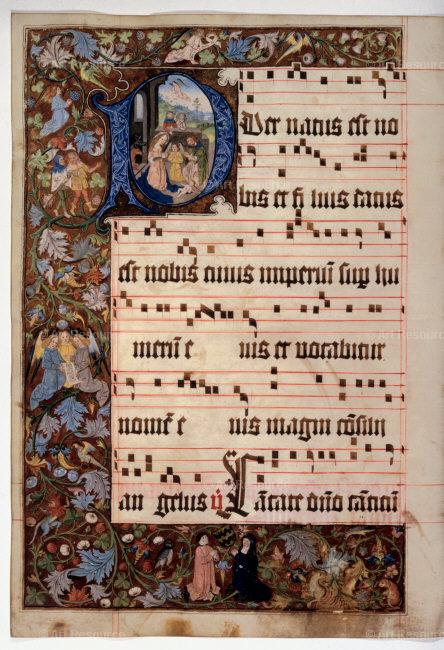 Puer natus est no
bis et fi lius datus
est nobis cuius imperiũ sup hu
merũ e ius et vocabitur
nomẽ e ius magni cõsilii
an gelus ℣ Cãtate dño cãticũ
© Art Resource